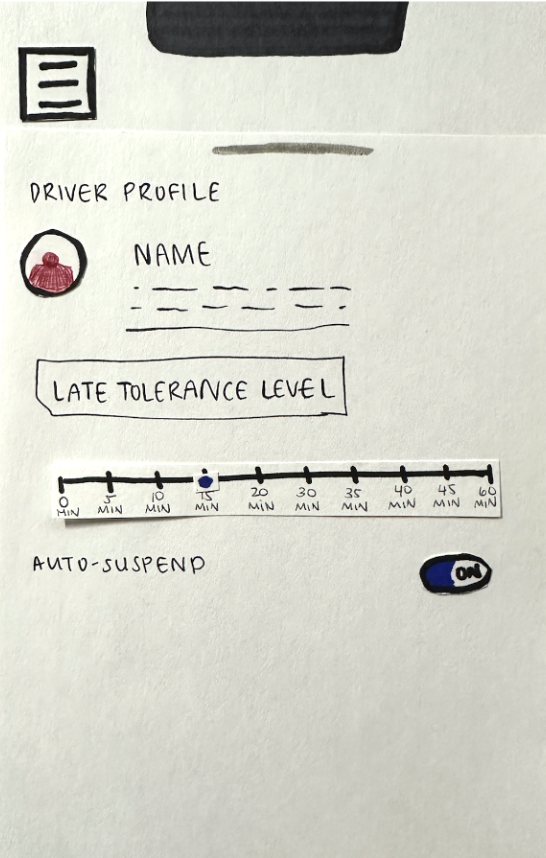 DRIVER PROFILE
NAME
LATE TOLERANCE LEVEL
0 MIN 5 MIN 10 MIN 15 MIN 20 MIN 30 MIN 35 MIN 40 MIN 45 MIN 60 MIN
AUTO-SUSPEND ON